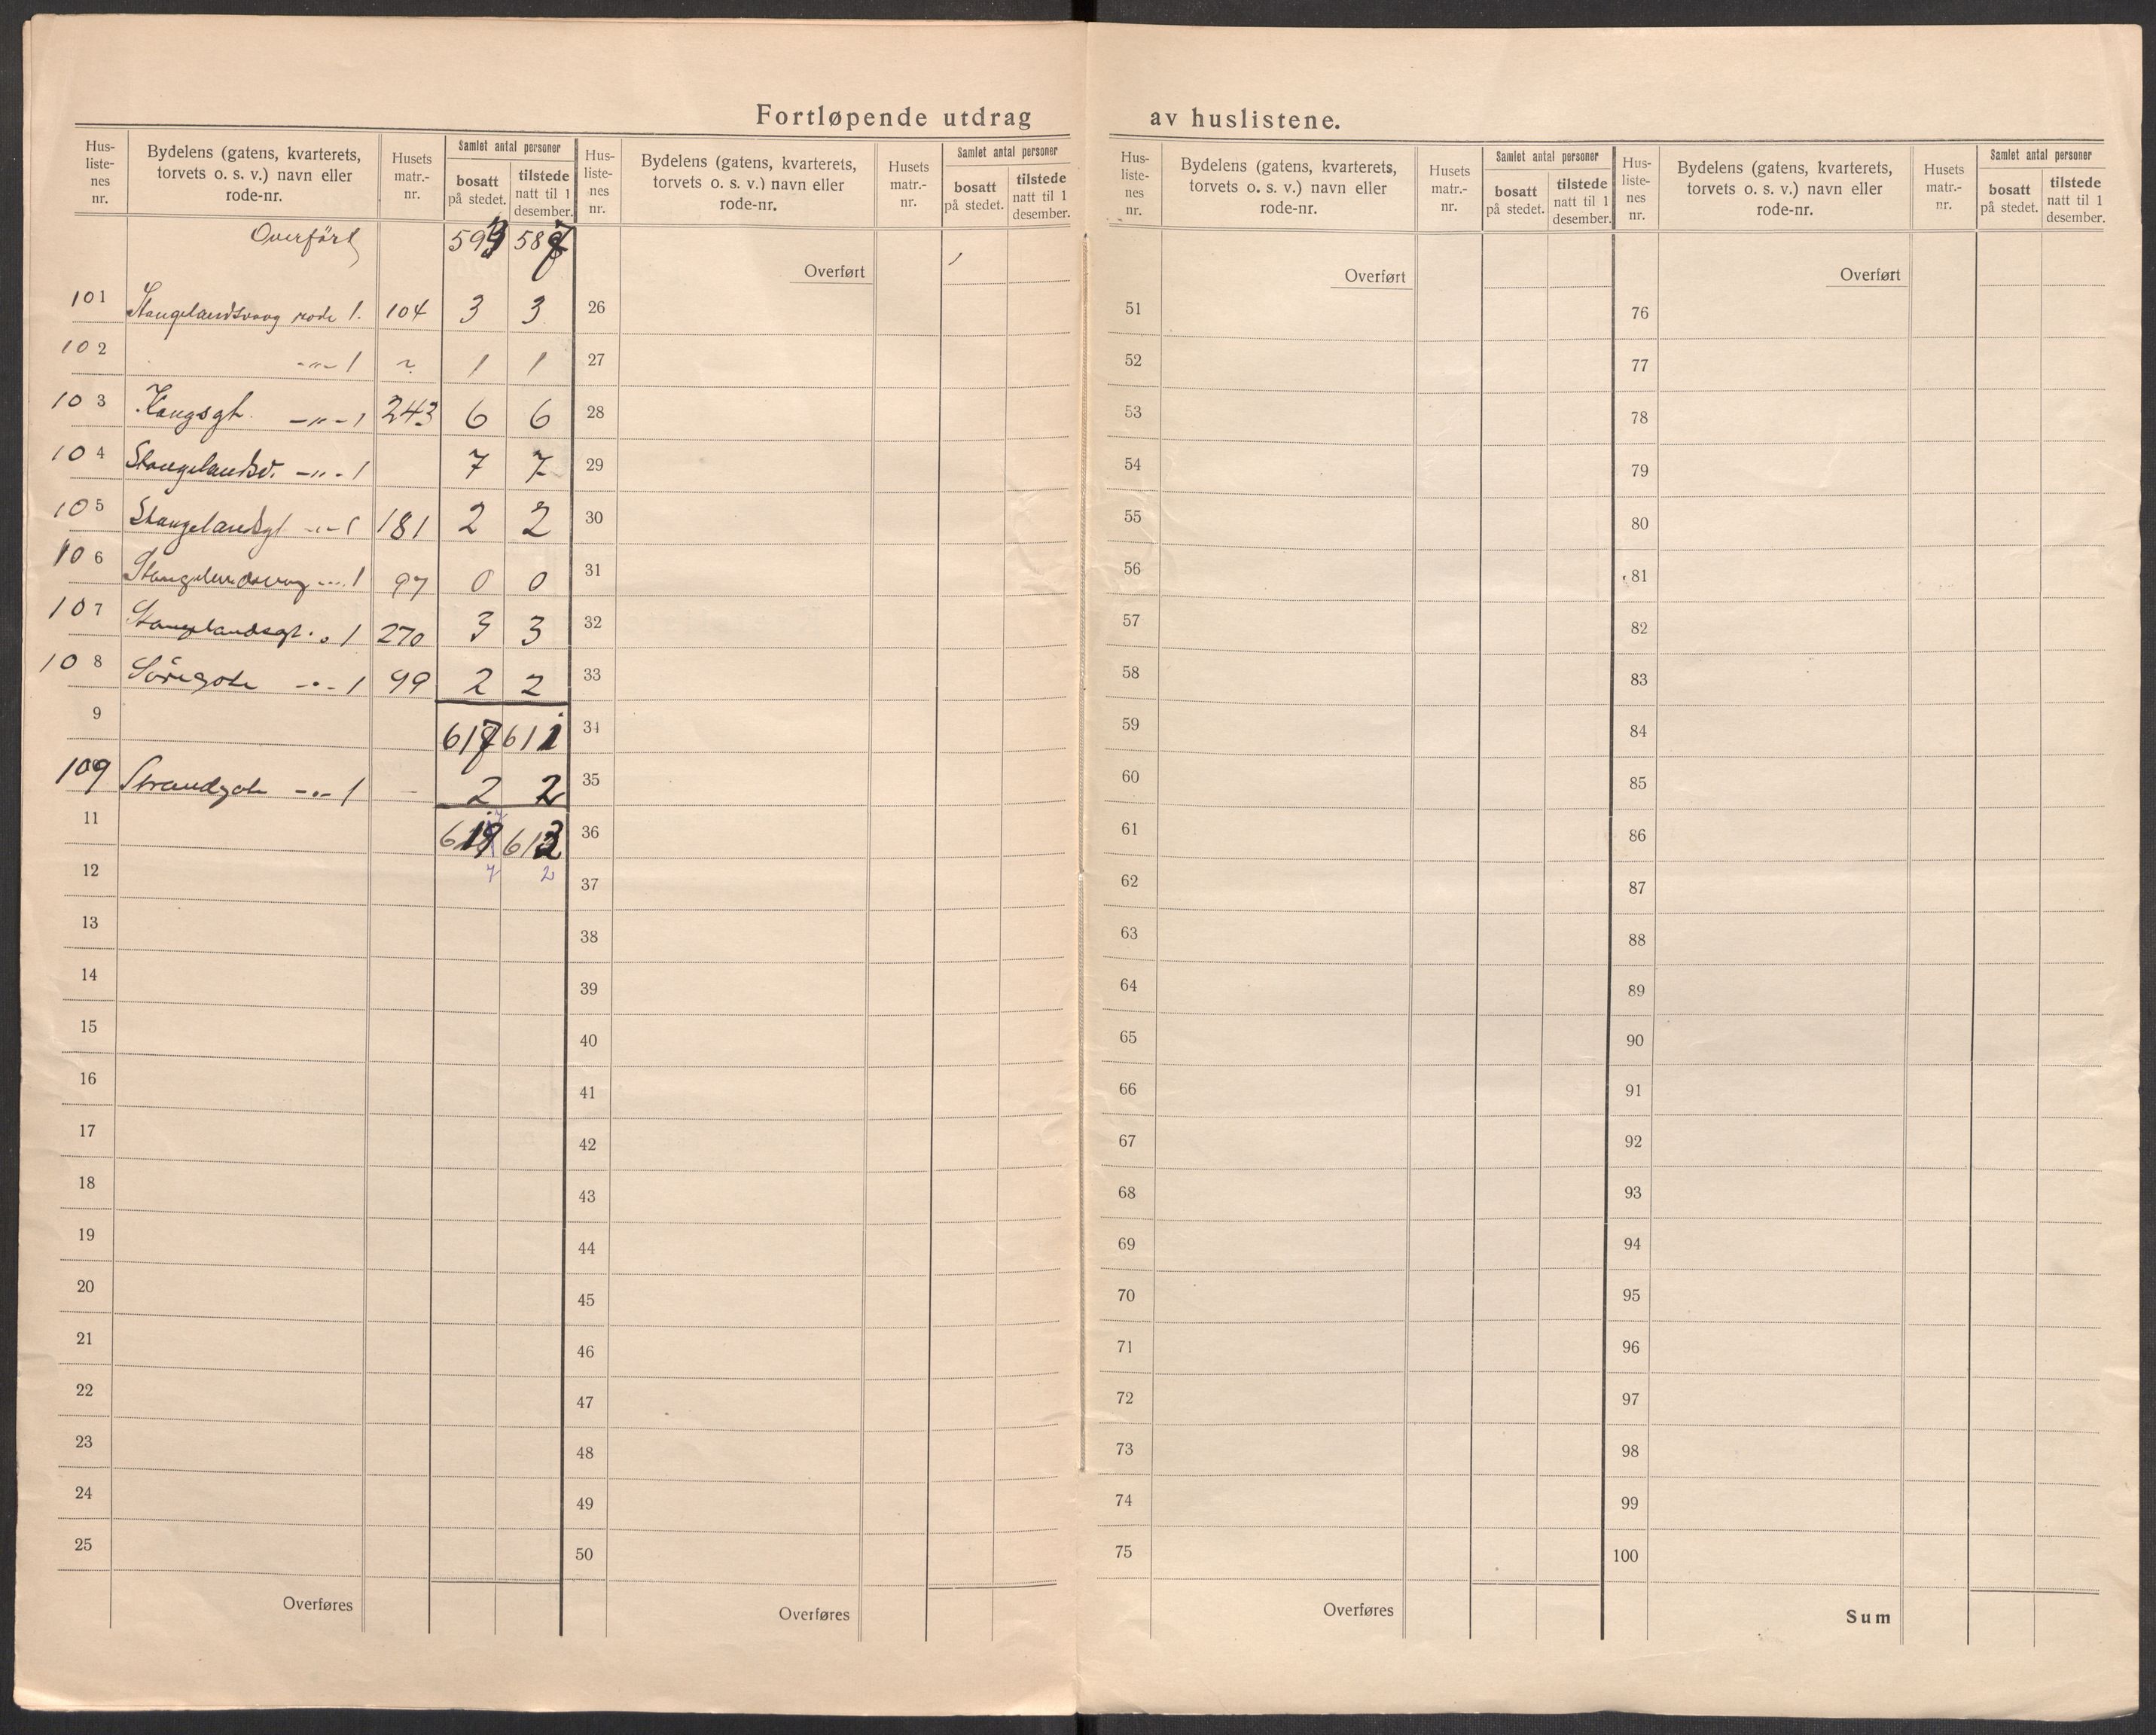 Fortløpende utdrag av huslistene.
Hus-listenes nr. | Bydelens (gatens, kvarterets, torvets o. s. v.) navn eller rode-nr. | Husets matr.-nr. | Samlet antal personer | bosatt på stedet. | tilstede natt til 1 desember.
Overført
101 Stangelandsvaag rode 1. 104 3 3
102 -"- 1 1 1
103 -"- 1 243 6 6
104 Stangelandsv. -"- 1 7 7
105 Stangelandsgt -"- 1 181 2 2
106 Stangelandsvaag -"- 1 97 0 0
107 Stangelandsgt. " 1 270 3 3
108 Söregate -"- 1 99 2 2
9 617 611
109 Strandgate -"- 1 - 2 2
11
12 7 2
13
14
15
16
17
18
19
20
21
22
23
24
25
Overføres
Hus-listenes nr. | Bydelens (gatens, kvarterets, torvets o. s. v.) navn eller rode-nr. | Husets matr.-nr. | Samlet antal personer | bosatt på stedet. | tilstede natt til 1 desember.
Overført
26
27
28
29
30
31
32
33
34
35
36
37
38
39
40
41
42
43
44
45
46
47
48
49
50
Overføres
Hus-listenes nr. | Bydelens (gatens, kvarterets, torvets o. s. v.) navn eller rode-nr. | Husets matr.-nr. | Samlet antal personer | bosatt på stedet. | tilstede natt til 1 desember.
Overført
51
52
53
54
55
56
57
58
59
60
61
62
63
64
65
66
67
68
69
70
71
72
73
74
75
Overføres
Hus-listenes nr. | Bydelens (gatens, kvarterets, torvets o. s. v.) navn eller rode-nr. | Husets matr.-nr. | Samlet antal personer | bosatt på stedet. | tilstede natt til 1 desember.
Overført
76
77
78
79
80
81
82
83
84
85
86
87
88
89
90
91
92
93
94
95
96
97
98
99
100
Sum